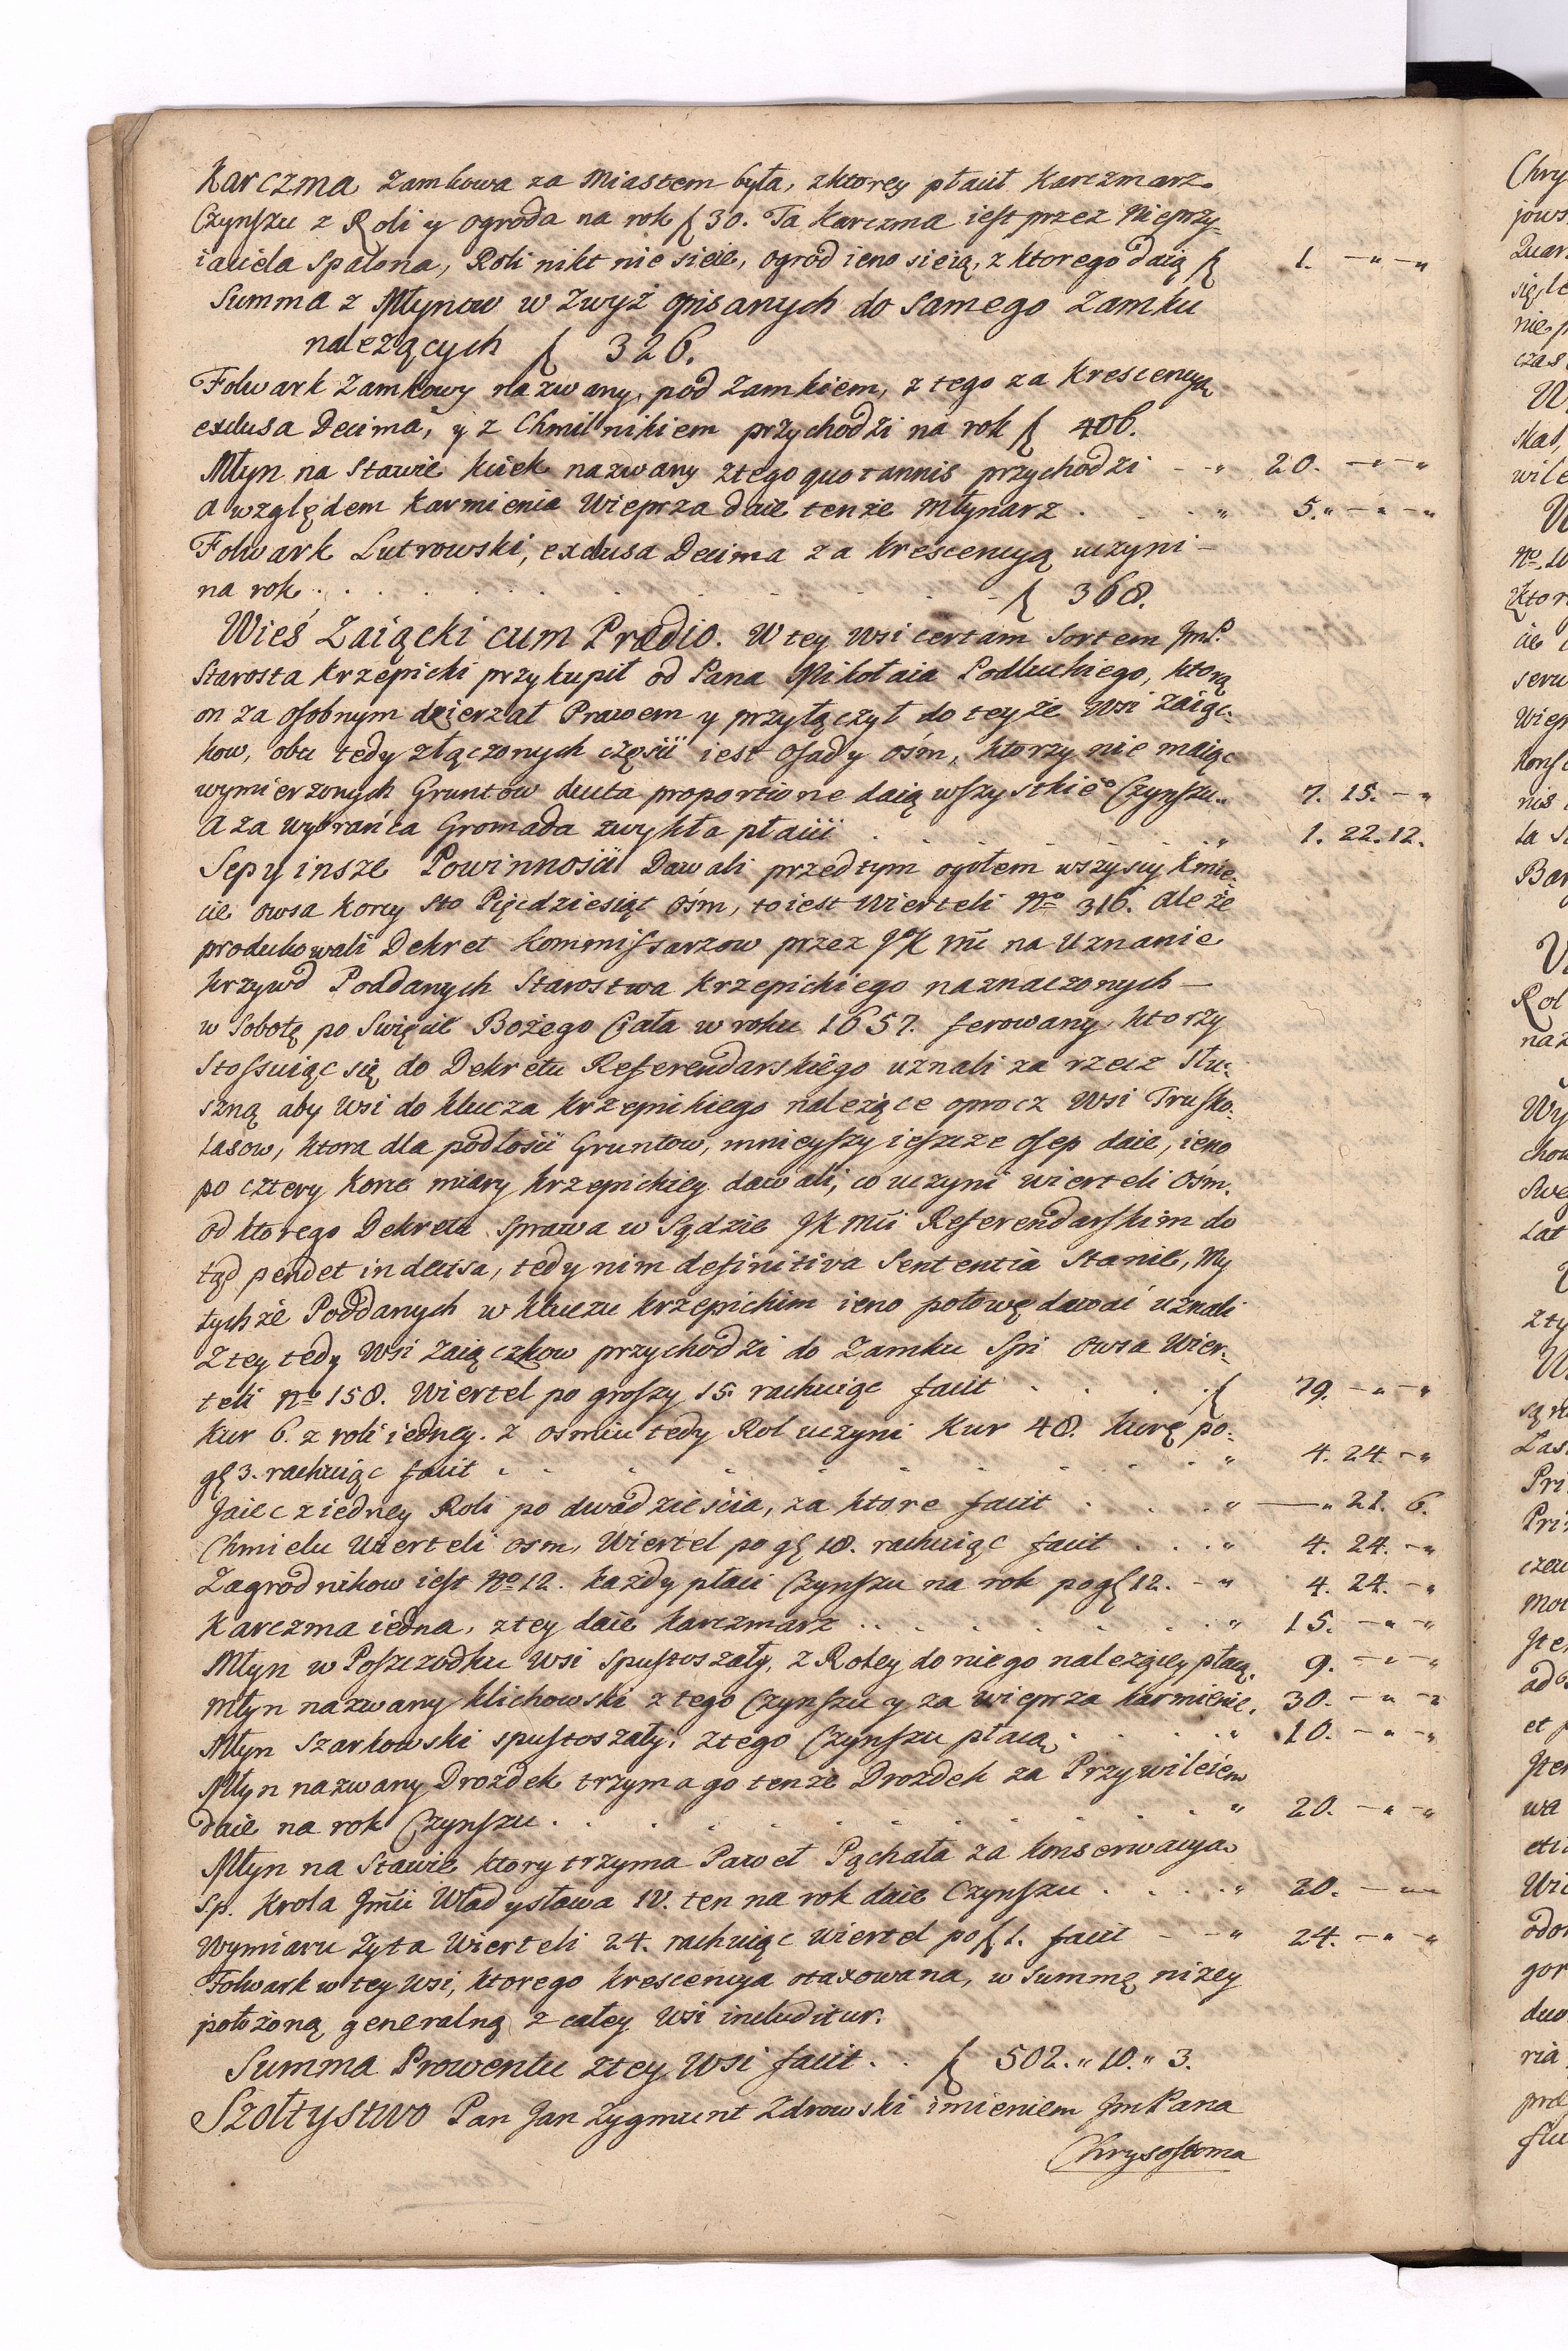 Karczma Zamkowa za Miastem była, zktorey płacił Karczmarz
Czynszu z Roli y ogroda na rok f 30. Ta Karczma iest przez Nieprzy-
iaciela Spalona, Roli nikt nie sieie, ogrod ieno sieią, z ktorego daią f 1. -"-"
Summa z Młynow w Zwyż opisanych do Samego Zamku
należących f 326.
Folwark Zamkowy nazwany, pod Zamkiem, z tego za Krescencyą
exclusa Decima, y z Chmilnikiem przychodzi na rok f 406.
Młyn na Stawie Kiiek nazwany ztego quotannis przychodzi - " 20. -"-"
a względem Karmienia Wieprza daie tenże Młynarz . . . " 5." -"-"
Folwark Lutrowski, exclusa Decima za Krescencyą uczyni -
na rok . . . . . . . . . . - f 368.
Wieś Zaiącki cum Prædio. W tey Wsi certam Sortem JmP.
Starosta Krzepicki przykupił od Pana Mikołaia Podłuckiego, ktorą
on za osobnym dzierżał Prawem y przyłączył do teyże Wsi Zaiąc-
kow, obu tedy złączonych części iest Osady ośm, ktorzy nie maiąc
wymierzonych Gruntow ducta proportione daią wszystkie° Czynszu" 7. 15. -"
a za Wybrańca Gromada zwykła płacić . . . . . " 1. 22. 12.
Sepy insze Powinności Dawali przedtym ogołem wszyscy Kmie-
cie owsa Korcy Sto Pięcdziesiąt Ośm, to iest Wierteli No 316. Ale że
produkowali Dekret Kommissarzow przez JK Mci na Uznanie
krzywd Poddanych Starostwa Krzepickiego naznaczonych -
w Sobotę po Swięcie Bożego Ciała w roku 1657. ferowany, ktorzy
Stossuiąc się do Dekretu Referendarskiego uznali za rzecz Słu-
szną aby Wsi do Klucza Krzepickiego należące oprocz Wsi Trusko-
lasow, ktora dla podłości Gruntow, mnieyszy ieszcze Osep daie, ieno
po cztery Korce miary Krzepickiey dawali, co uczyni wierteli Ośm.
od ktorego Dekretu Sprawa w Sądzie JK Mci Referendarskim do
tąd pendet indecisa, tedy nim definitiva Sententia Stanie, My
tychże Poddanych w Kluczu Krzepickim ieno połowę dawać uznali
Z tey tedy Wsi Zaiączkow przychodzi do Zamku Spi Owsa Wier-
teli No 158. Wiertel po groszy 15. rachuiąc facit . . . . . f 79. -"-"
Kur 6. z roli iedney. Z osmiu tedy Rol uczyni Kur 48. Kurę po-
gſ 3. rachuiąc facit . . . . . . . . . . " 4. 24. -"
Jaiec z iedney Roli po dwadzieścia, za ktore facit . . . . " —" 21. 6.
Chmielu Wierteli osm, Wiertel po gſ 18. rachuiąc facit . . . " 4. 24. -"
Zagrodnikow iest No 12. Każdy płaci Czynszu na rok po gſ 12. - " 4. 24. -"
Karczma iedna, ztey daie Karczmarz . . . . . . . " 15. -"-"
Młyn w Poszczodku Wsi Spustoszały, z Roley do niego należącey płacą. 9. -"-"
Młyn nazwany Klichowski z tego Czynszu y za wieprza karmienie. 30. -"-"
Młyn Szarkowski spustoszały, ztego Czynszu płacą . . . . " 10. -"-"
Młyn nazwany Drozdek trzyma go tenże Drozdek za Przywileiem
daie na rok Czynszu . . . . . . . . . . " 20. -"-"
Młyn na Stawie ktory trzyma Paweł Pąchała za konserwacya
Sp. Krola Jmci Władysława IV. ten na rok daie Czynszu . . . . " 20. -"-"
Wymiaru Zyta Wierteli 24. rachuiąc wiertel po f 1. facit - - " 24. -"-"
Folwark w tey Wsi, ktorego krescencya otaxowana, w Summę niżey
położoną generalną z całey Wsi includitur.
Summa Prowentu ztey Wsi facit . . f 502." 10." 3.
Szołtystwo Pan Jan Zygmunt Zdrowski imieniem Jm Pana
Chrysostoma